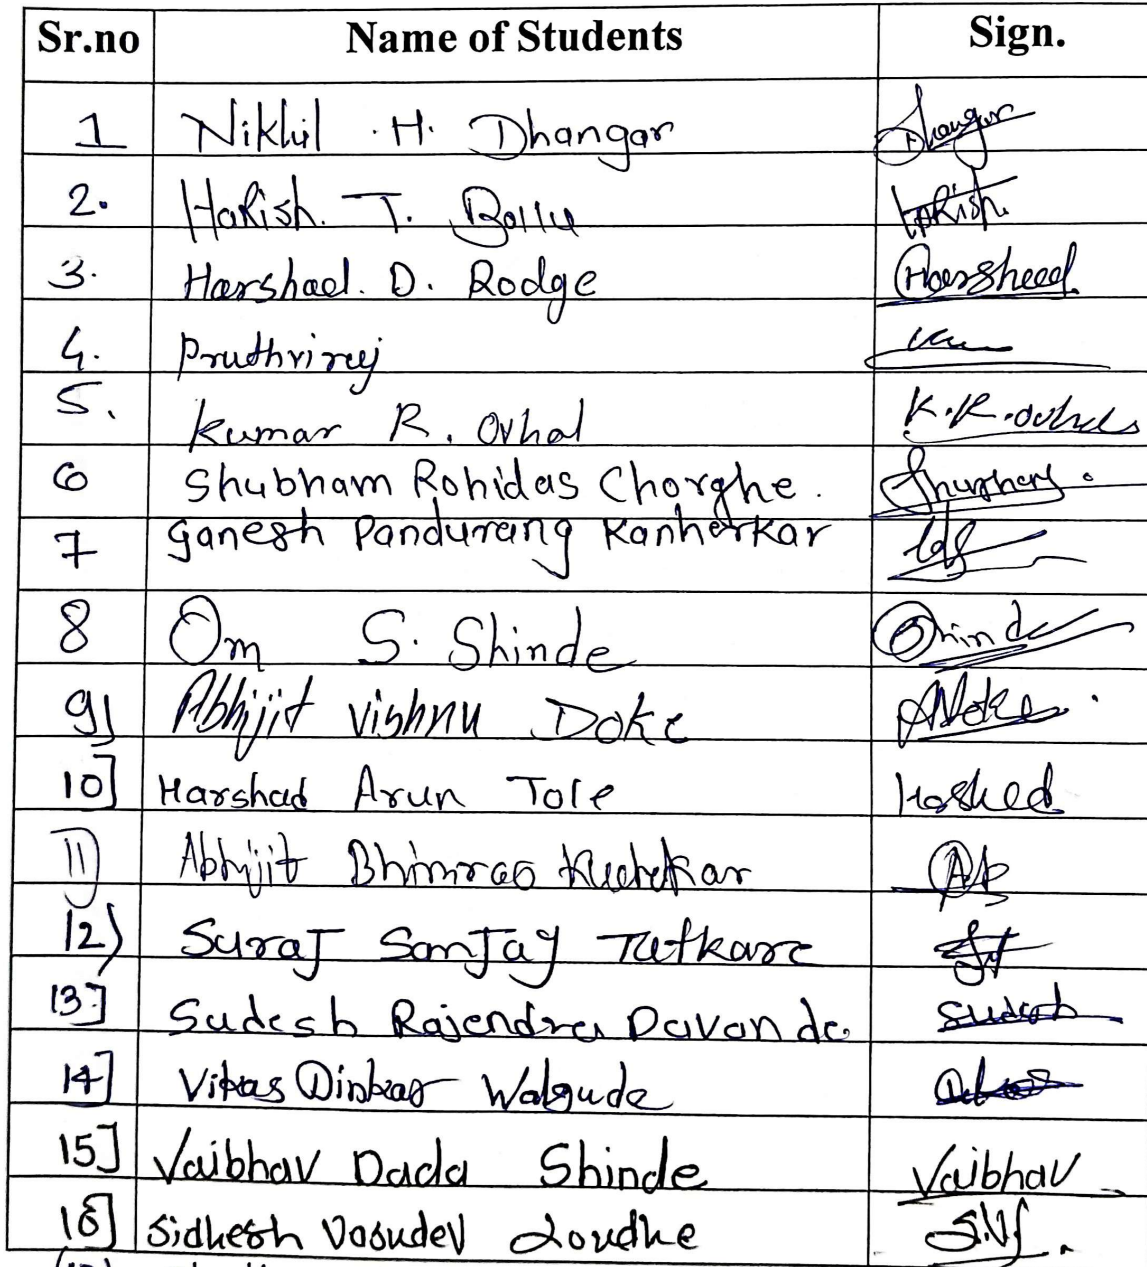 Sr.no Name of Students Sign.
1 Nikhil .H. Dhangar Dhangar
2. Harish. T. Bollu Harish.
3. Harshad. D. Rodge Harshad
4. Pruthviraj
5. Kumar R. Ovhal K.R.ovhal
6 Shubham Rohidas Chorghe.
7 Ganesh Pandurang Kanherkar
8 Om S. Shinde Shinde
9) Abhijit Vishnu Doke ADoke.
10] Harshad Arun Tole Hashed
11) Abhijit Bhimrao
12) Suraj Sanjay Tatkare
13] Sudesh Rajendra Davande Sudesh
14] Vikas Dinkar Walgude
15] Vaibhav Dada Shinde Vaibhav
16] Sidhesh Vasudev Londhe S.V.